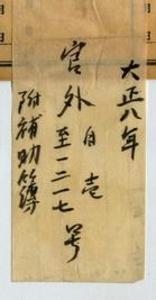 大正八年
官外自壱至一二一七号
附補助簿